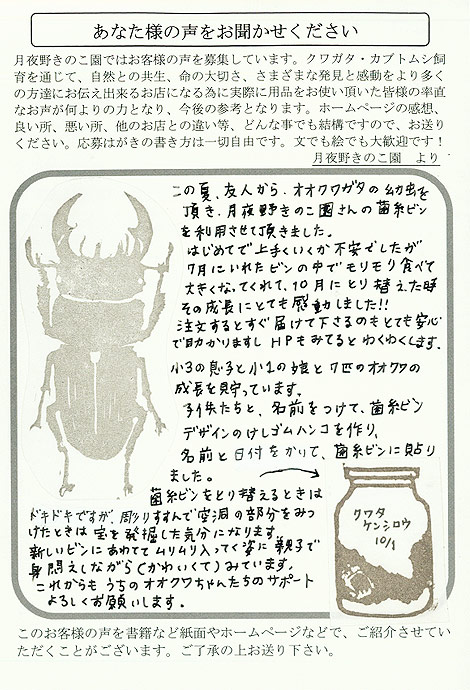 あなた様の声をお聞かせください
月夜野きのこ園ではお客様の声を募集しています。クワガタ・カブトムシ飼
育を通じて、自然との共生、命の大切さ、さまざまな発見と感動をより多く
の方達にお伝え出来るお店になる為に実際に用品をお使い頂いた皆様の率直
なお声が何よりの力となり、今後の参考となります。ホームページの感想、
良い所、悪い所、他のお店との違い等、どんな事でも結構ですので、お送り
ください。応募はがきの書き方は一切自由です。文でも絵でも大歓迎です！
月夜野きのこ園 より
この夏、友人から、オオクワガタの幼虫を
頂き、月夜野きのこ園さんの菌糸ビン
を利用させて頂きました。
はじめてで上手くいくか不安でしたが
7月にいれたビンの中でモリモリ食べて
大きくなってくれて、10月にとり替えた時
その成長にとても感動しました!!
注文するとすぐ届けて下さるのもとても安心
で助かりますし HPもみてるとわくわくします。
小3の息子と小1の娘と7匹のオオクワの
成長を見守っています。
子供たちと、名前をつけて、菌糸ビン
デザインのけしゴムハンコを作り、
名前と日付をかいて、菌糸ビンに貼り
ました。
菌糸ビンをとり替えるときは
ドキドキですが、周りすすんで空洞の部分をみつ
けたときは宝を発掘した気分になります。
新しいビンにあわてて ムリムリ入ってく姿に親子で
身悶えしながら(かわいくて)みています。
これからも うちのオオクワちゃんたちのサポート
よろしくお願いします。
クワタ
ケンシロウ
10/1
このお客様の声を書籍など紙面やホームページなどで、ご紹介させてい
ただくことがございます。ご了承の上お送り下さい。